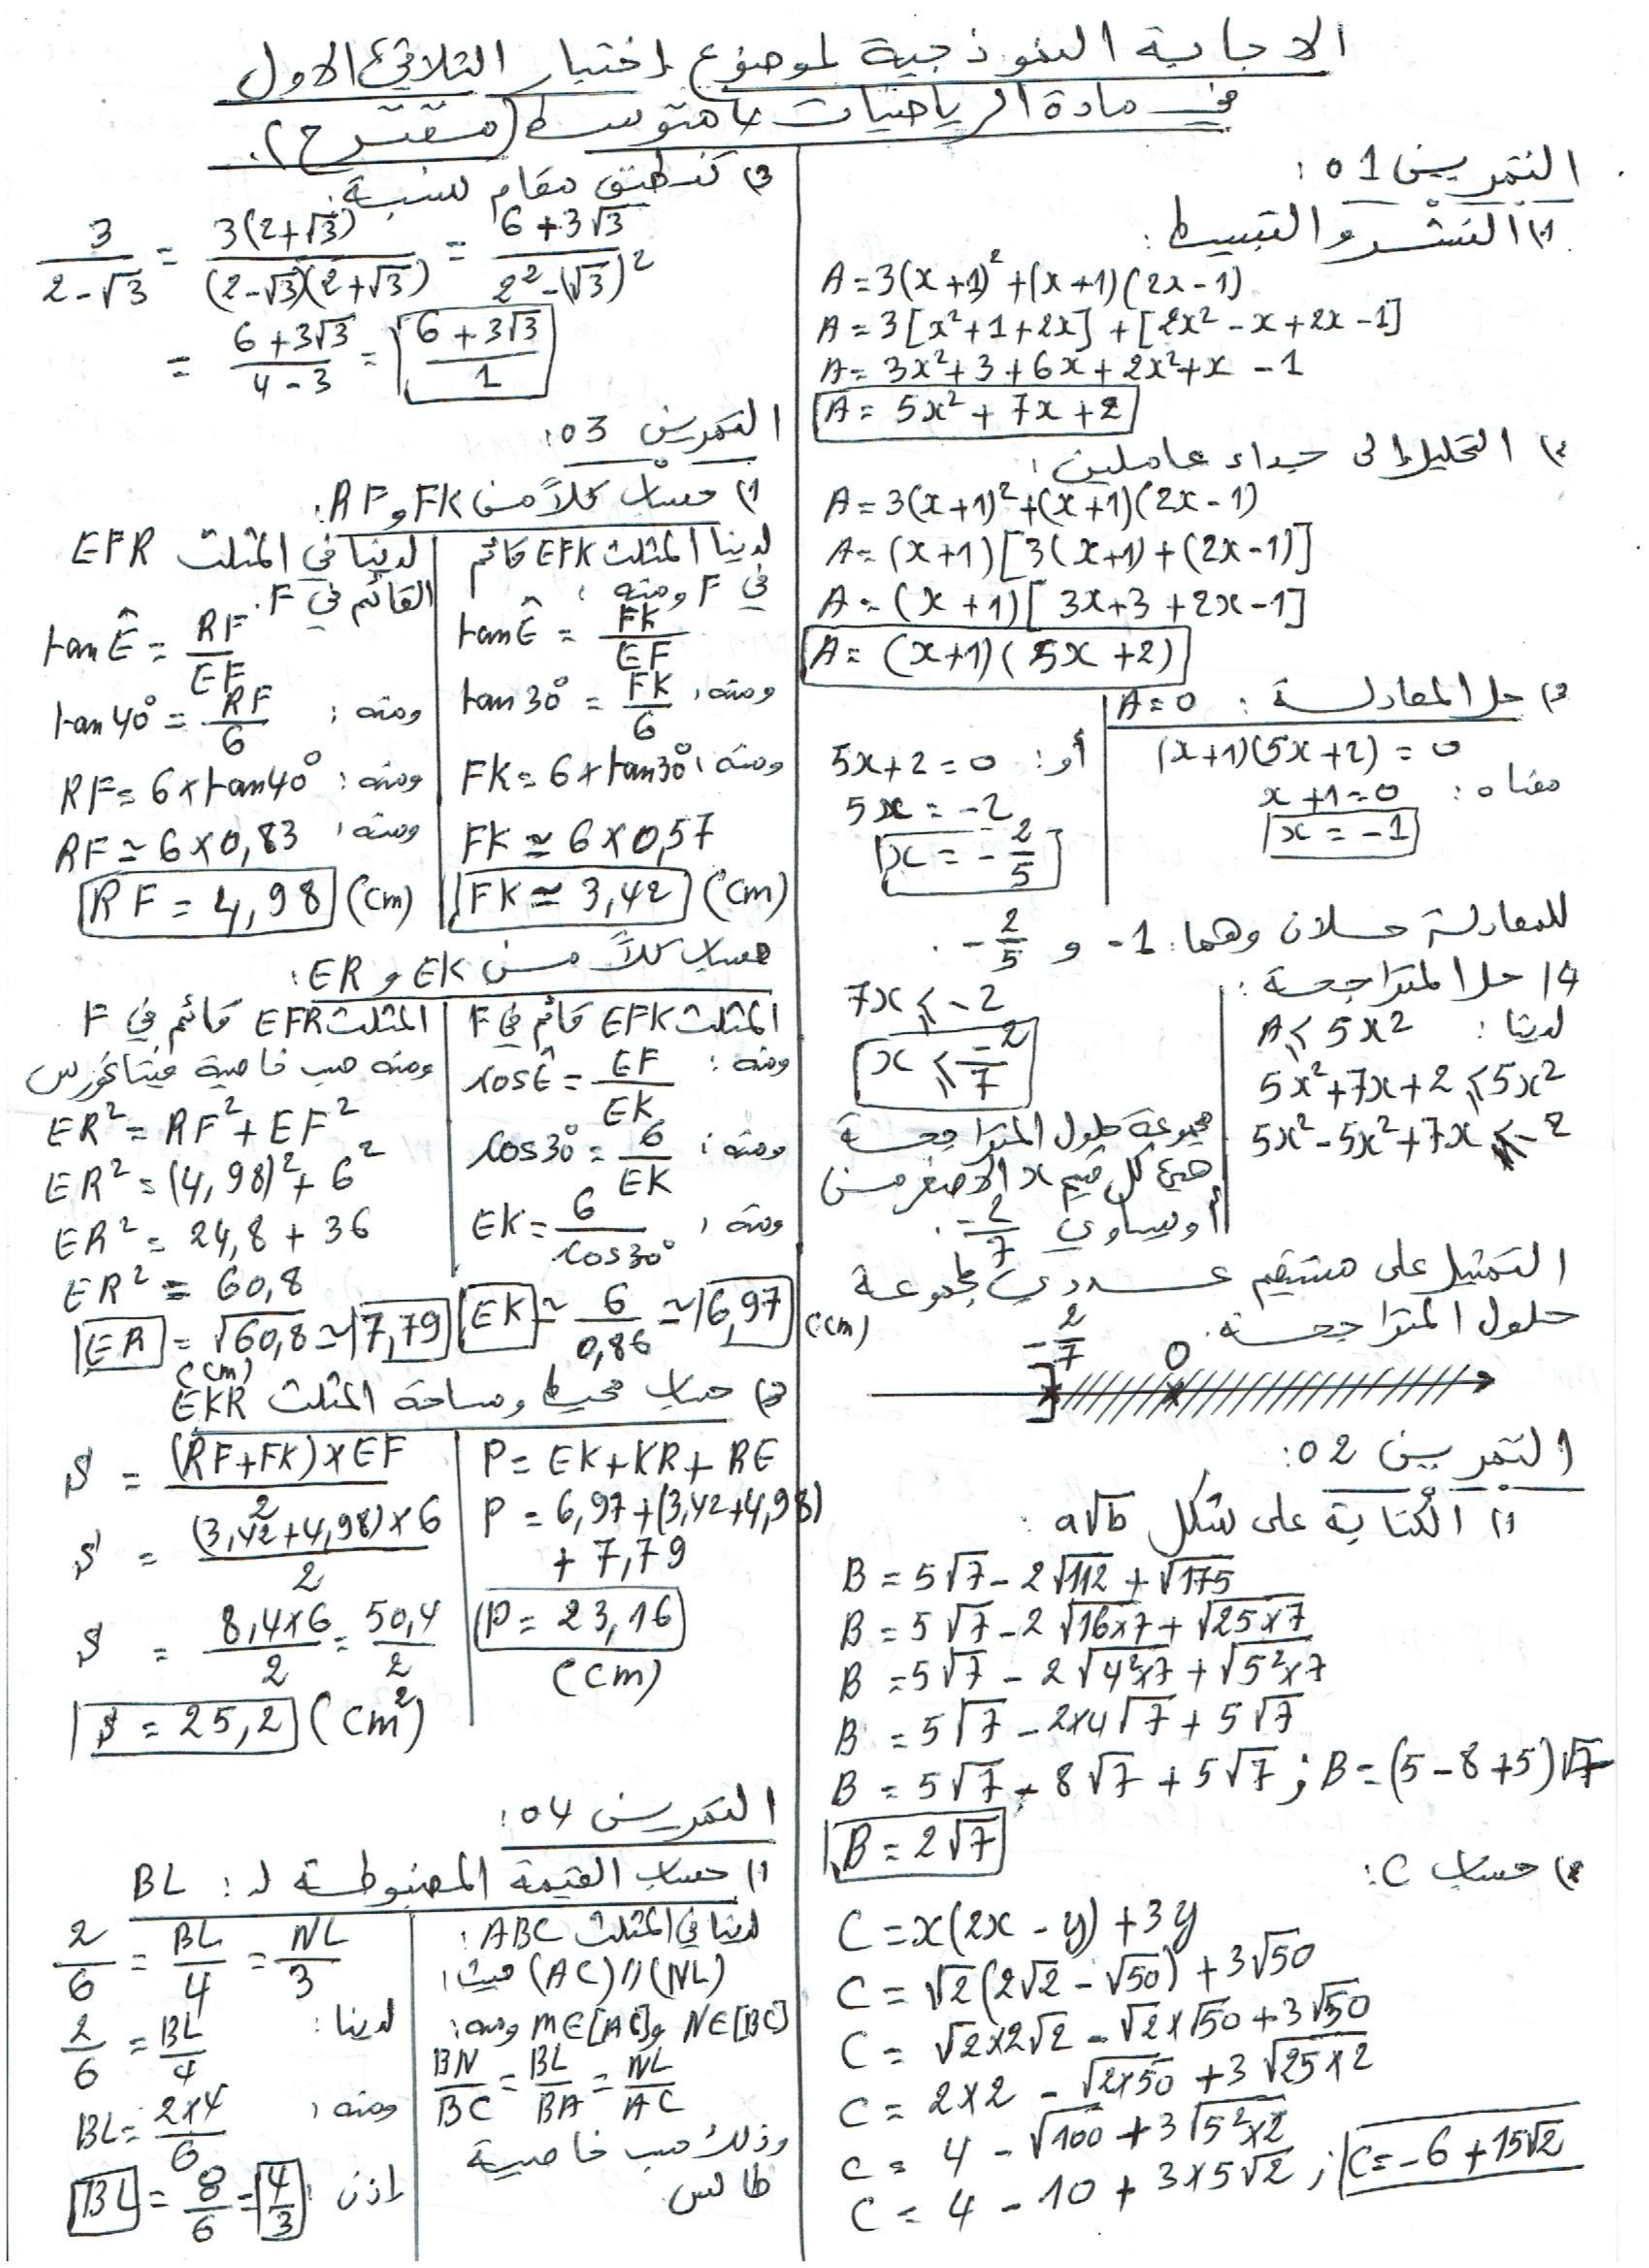 الاجابة النموذجية لموضوع إختبار الثلاثي الاول
في مادة الرياضيات 4 متوسط (مقترح).
التمرين 01:
1) النشر والتبسيط:
A = 3(x+1)² + (x+1)(2x-1)
A = 3[x²+1+2x] + [2x² - x + 2x - 1]
A = 3x²+3+6x+2x²+x - 1
A = 5x² + 7x + 2
2) التحليل إلى جداء عاملين:
A = 3(x+1)²+(x+1)(2x-1)
A = (x+1)[3(x+1)+(2x-1)]
A = (x+1)[3x+3+2x-1]
A = (x+1)(5x+2)
3) حل المعادلة: A=0
(x+1)(5x+2) = 0
معناه: x+1=0
x = -1
أو: 5x+2=0
5x = -2
x = -2/5
للمعادلة حلان وهما: -1 و -2/5.
4) حل المتراجحة:
لدينا: A ⩽ 5x²
5x²+7x+2 ⩽ 5x²
5x²-5x²+7x ⩽ -2
7x ⩽ -2
x ⩽ -2/7
مجموعة حلول المتراجحة
هي كل قيم x الأصغر من
أو يساوي -2/7.
التمثيل على مستقيم عددي لمجموعة
حلول المتراجحة.
-2/7 0
التمرين 02:
1) الكتابة على شكل a√b:
B = 5√7 - 2√112 + √175
B = 5√7 - 2√16×7 + √25×7
B = 5√7 - 2√4²×7 + √5²×7
B = 5√7 - 2×4√7 + 5√7
B = 5√7 - 8√7 + 5√7 ; B = (5-8+5)√7
B = 2√7
2) حساب C:
C = x(2x - y) + 3y
C = √2(2√2 - √50) + 3√50
C = √2×2√2 - √2×√50 + 3√50
C = 2×2 - √2×50 + 3√25×2
C = 4 - √100 + 3√5²×2
C = 4 - 10 + 3×5√2 ; C = -6 + 15√2
3) كتابة مقام لنسبة:
3/(2-√3) = 3(2+√3)/((2-√3)(2+√3)) = (6+3√3)/(2²-(√3)²)
= (6+3√3)/(4-3) = (6+3√3)/1
التمرين 03:
1) حساب كلاً من FK و RF:
لدينا المثلث EFK قائم
في F ومنه:
tan Ê = FK/EF
ومنه: tan 30° = FK/6
ومنه: FK = 6×tan30°
FK ≃ 6×0,57
FK ≃ 3,42 (cm)
لدينا في المثلث EFR
القائم في F.
tan Ê = RF/EF
ومنه: tan 40° = RF/6
ومنه: RF = 6×tan40°
ومنه: RF ≃ 6×0,83
RF = 4,98 (cm)
حساب كلاً من EK و ER:
المثلث EFK قائم في F
ومنه: cos Ê = EF/EK
ومنه: cos30° = 6/EK
ومنه: EK = 6/cos30°
EK ≃ 6/0,86 ≃ 6,97 (cm)
المثلث EFR قائم في F
ومنه حسب خاصية فيتاغورس
ER² = RF² + EF²
ER² = (4,98)² + 6²
ER² = 24,8 + 36
ER² = 60,8
ER = √60,8 ≃ 7,79
(cm)
3) حساب محيط ومساحة المثلث EKR
P = EK+KR+RE
P = 6,97+(3,42+4,98)
+ 7,79
P = 23,16
(cm)
S = (RF+FK)×EF/2
S = (3,42+4,98)×6/2
S = 8,4×6/2 = 50,4/2
S = 25,2 (cm²)
التمرين 04:
1) حساب القيمة المضبوطة لـ: BL
لدينا في المثلث ABC:
(AC)//(NL) حيث:
N∈[BC] و M∈[AC] ومنه:
BN/BC = BL/BA = NL/AC
وذلك حسب خاصية
طالس.
2/6 = BL/4 = NL/3
لدينا: 2/6 = BL/4
ومنه: BL = 2×4/6
إذن: BL = 8/6 = 4/3